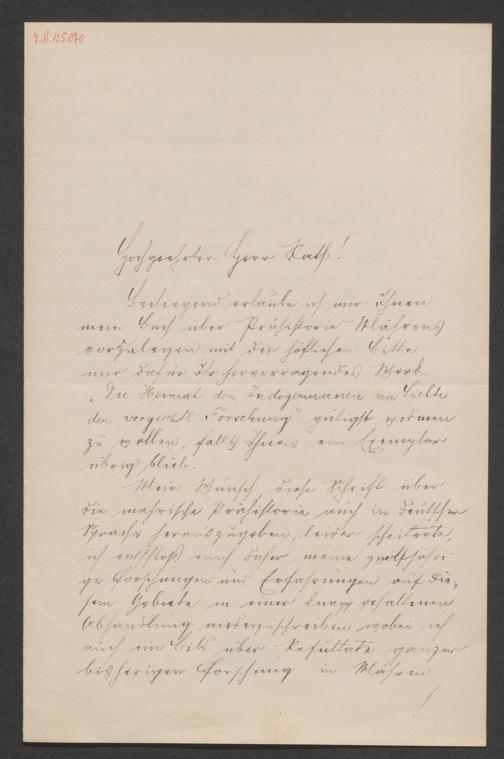 I.N. 125.070
Hochgeehrter Herr Rath!
Beiliegend erlaube ich mir Ihnen
mein Buch über Prähistorie Mährens
vorzulegen mit der höflichen Bitte
mir dafür Ihr hervorragendes Werk
„Die Heimat der Indogermanen im Lichte
der vorgeschtl. Forschung" gütigst widmen
zu wollen, falls Ihnen ein Exemplar
übrig blieb.
Mein Wunsch, diese Schrift über
die mährische Prähistorie auch in deutscher
Sprache herauszugeben, leider scheiterte,
ich entschloß mich daher meine zwölfjähri
ge Forschungen und Erfahrungen auf die-
sem Gebiete in einer knapp gehaltenen
Abhandlung niederzuschreiben wobei ich
auch ein Bild über Resultate ganzer
bisherigen Forschung in Mähren
./.